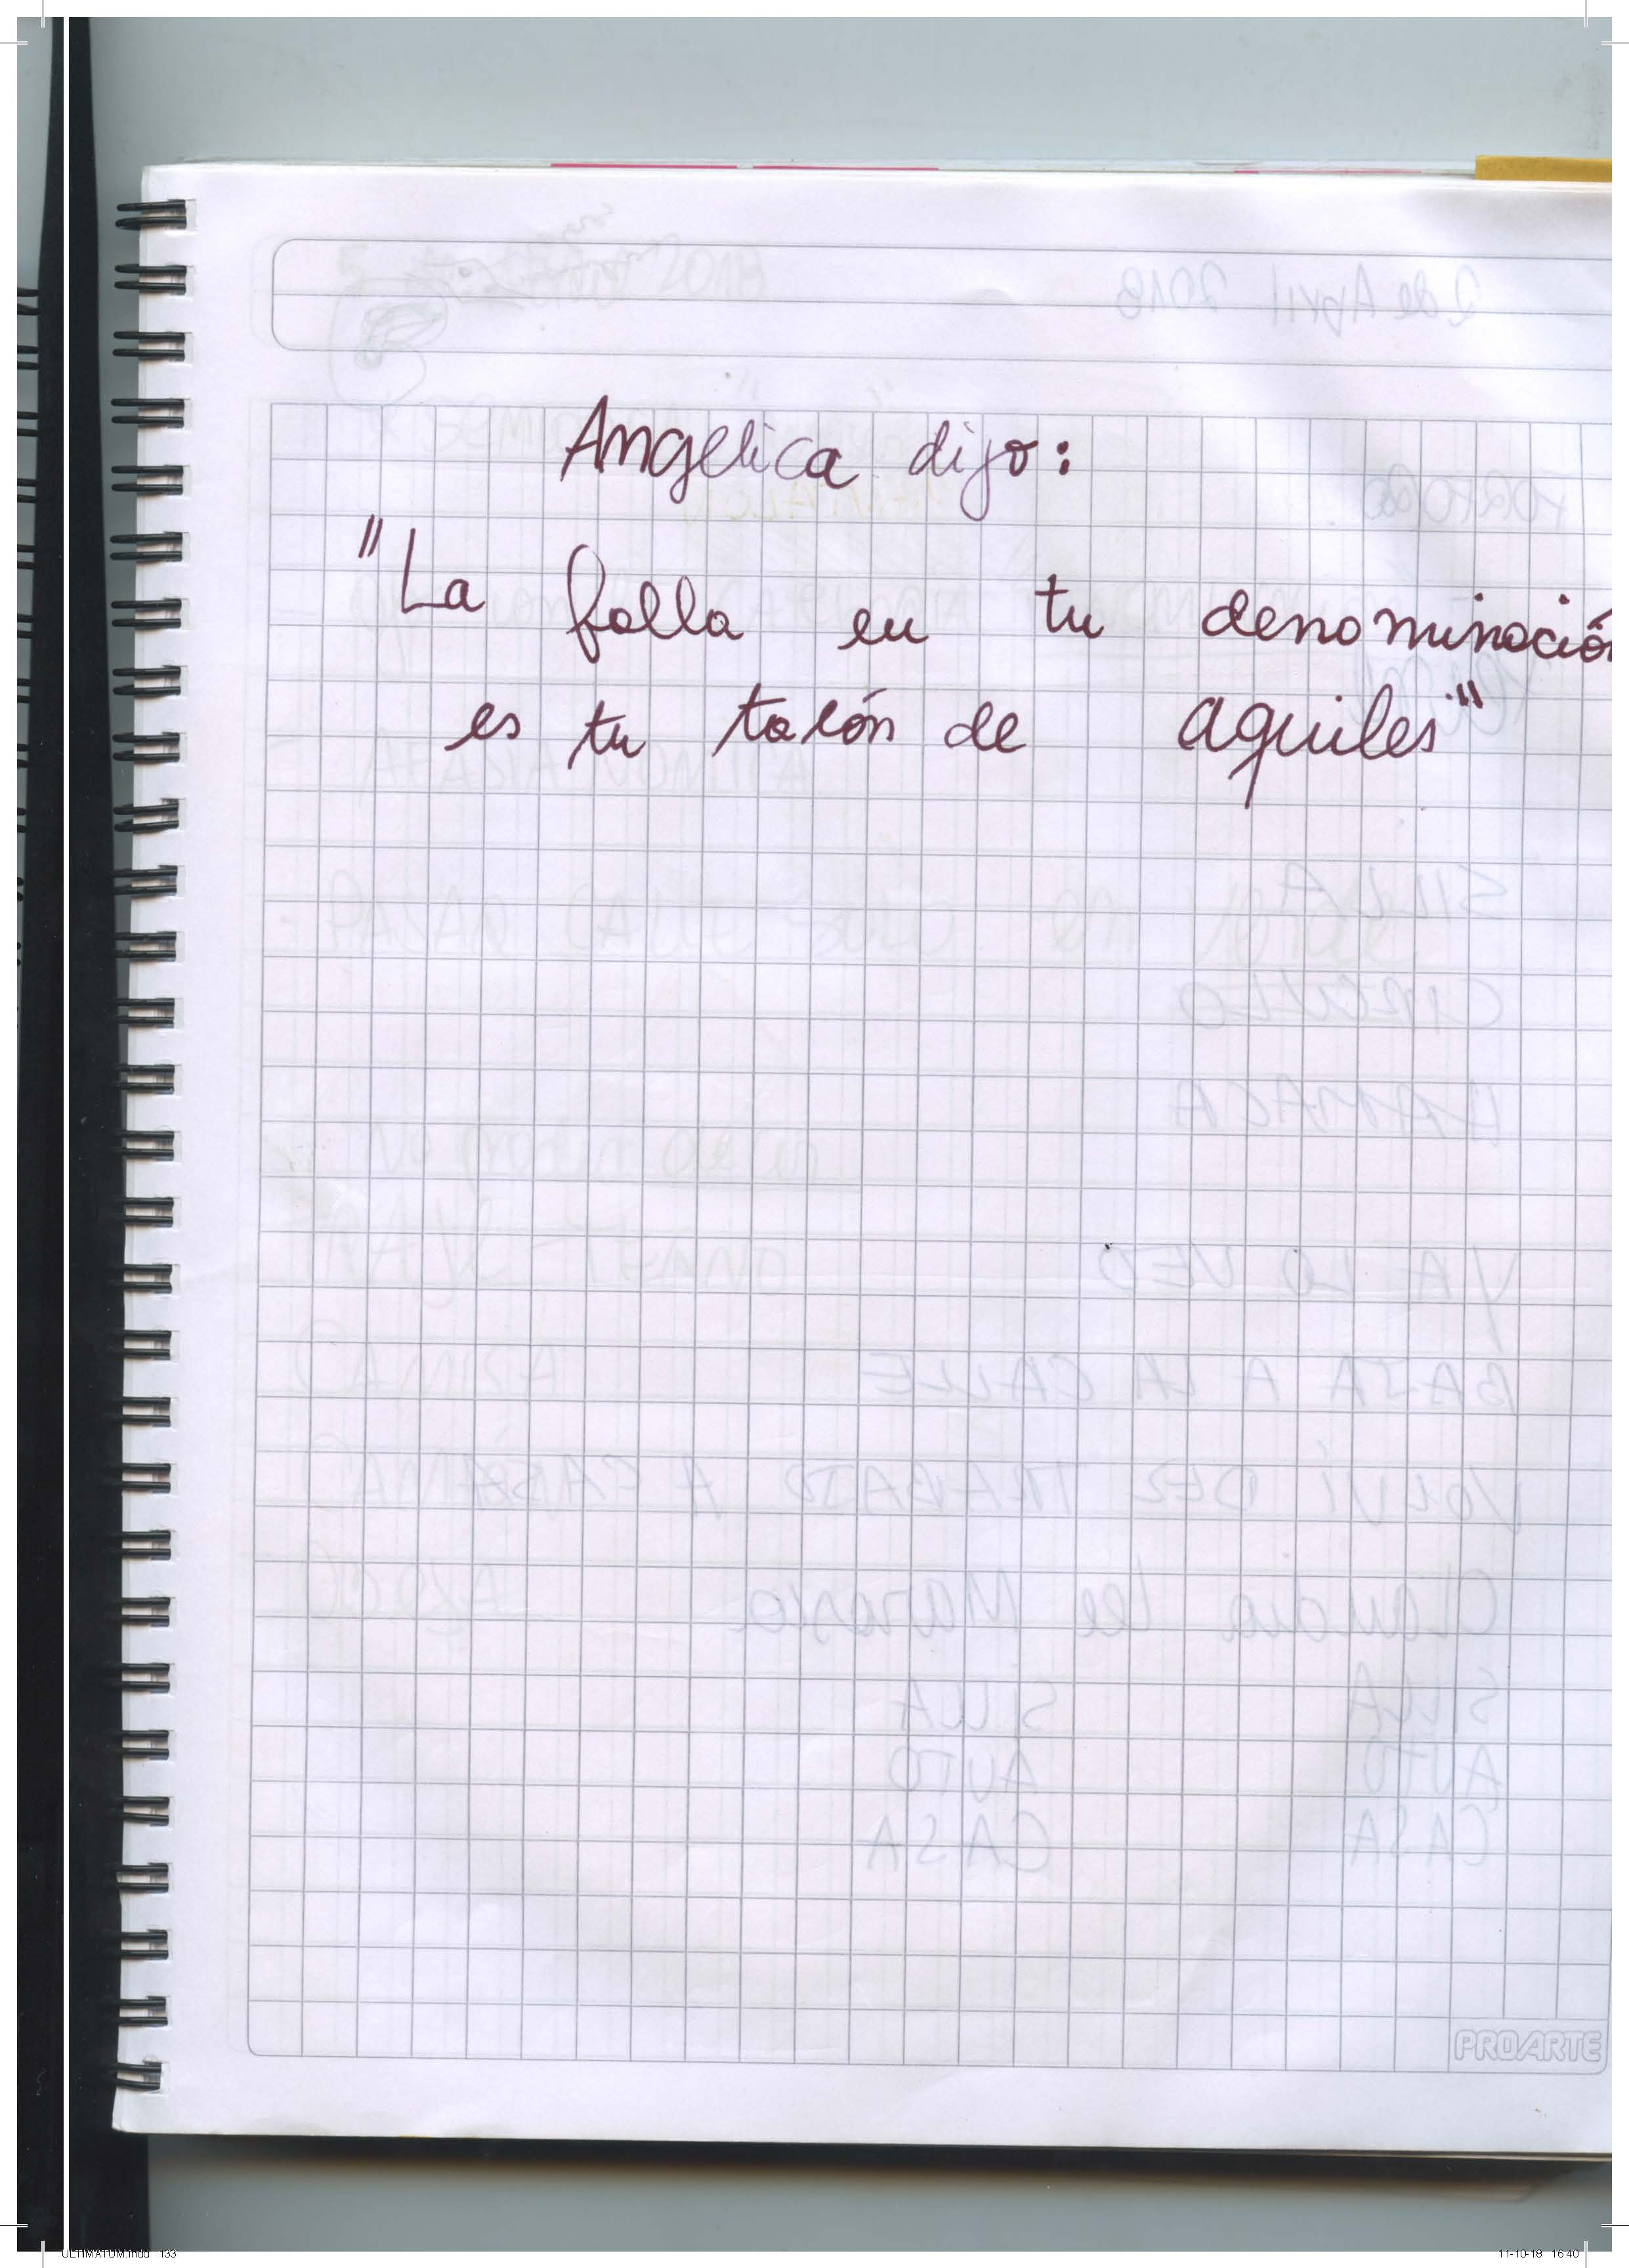 Angelica dijo:
"La falla en tu denominación
es tu talón de aquiles"
PROARTE
ULTIMATUM.indd 133
11-10-18 16:40